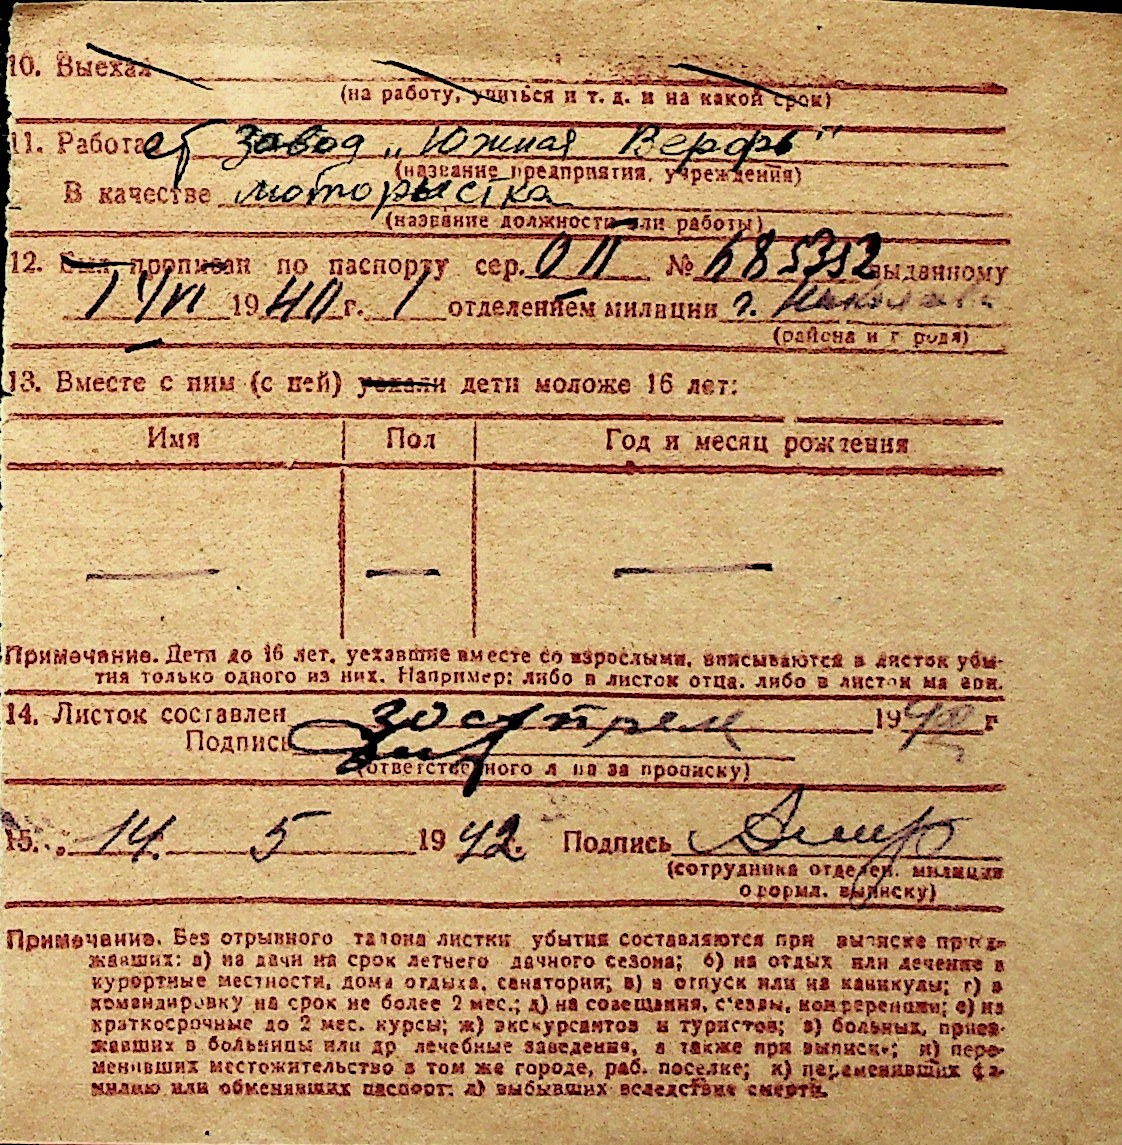 10. Выехал
(на работу, учиться и т. д. и на какой срок)
11. Работает завод „Южная Верфь"
(название предприятия, учреждения)
В качестве мотористка
(название должности или работы)
12. Был прописан по паспорту сер. ОП № 685352 выданному
1940 г. 1 отделением милиции г. Николаева
(района и города)
13. Вместе с ним (с ней) уехали дети моложе 16 лет:
Имя Пол Год и месяц рождения
— — —
Примечание. Дети до 16 лет, уехавшие вместе со взрослыми, вписываются в листок убы-
тия только одного из них. Например: либо в листок отца, либо в листок матери.
14. Листок составлен 30 апреля 1942 г
Подпись
(ответственного лица за прописку)
15. „ 14. 5 1942. Подпись
(сотрудника отделен. милиции
оформл. выписку)
Примечание. Без отрывного талона листки убытия составляются при выписке приез-
жавших: а) на дачи на срок летнего дачного сезона; б) на отдых или лечение в
курортные местности, дома отдыха, санатории; в) в отпуск или на каникулы; г) в
командировку на срок не более 2 мес.; д) на совещания, с'езды, конференции; е) на
краткосрочные до 2 мес. курсы; ж) экскурсантов и туристов; з) больных, приез-
жавших в больницы или др лечебные заведения, а также при выписке; и) пере-
менивших местожительство в том же городе, раб. поселке; к) переменивших фа-
милию или обменявших паспорт: л) выбывших вследствие смерти.